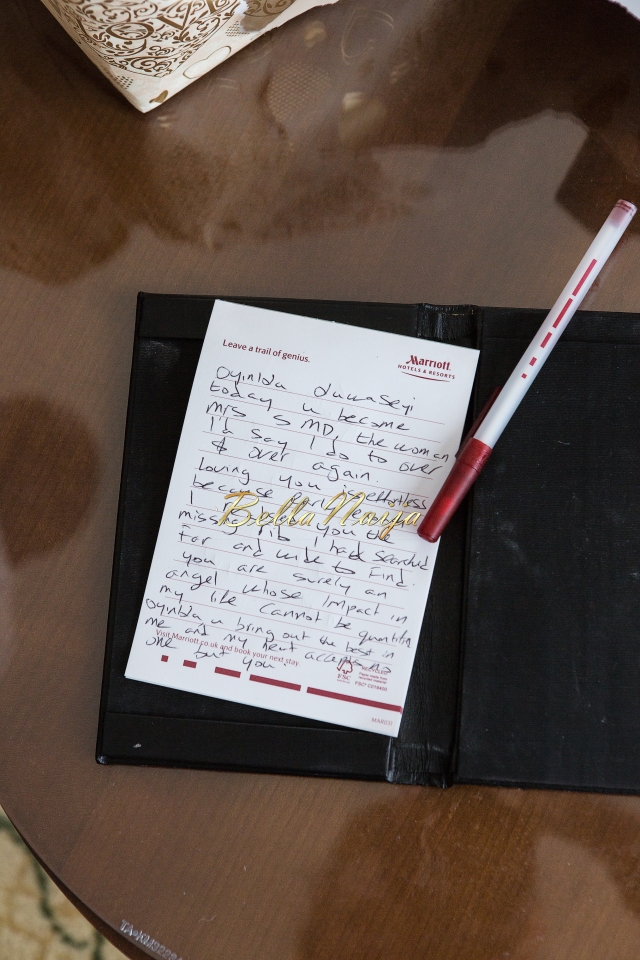 Leave a trail of genius.
Marriott
HOTELS & RESORTS
Oyinkda Oluwaseyi
today u become
mrs S MD, the woman
I'd say I do to over
& over again.
loving you is effortless
because
I you the
missing rib I had searched
far and wide to find.
you are surely an
angel whose impact in
my life cannot be quantified
Oyinkda u bring out the best in
me and my heart accepts no
one but you.
Visit Marriott.co.uk and book your next stay
FSC
BellaNaija